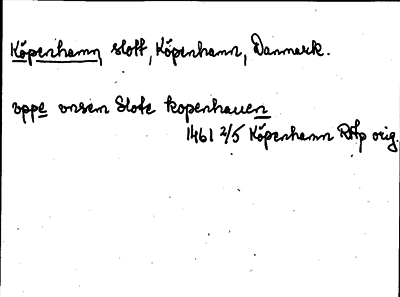 Köpenhamn, slott, Köpenhamn, Danmark.
uppe onsem Slote kopenhauen
1461 2/5 Köpenhamn RHp orig.